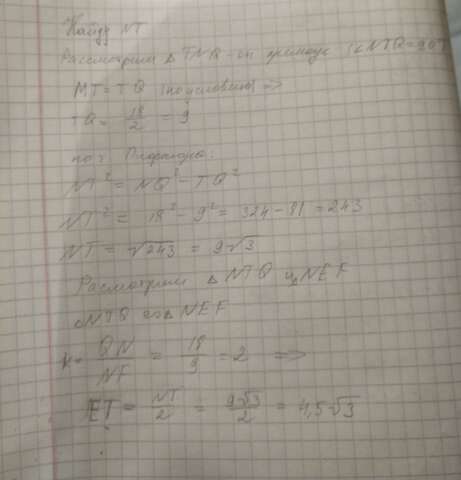 Найду NT
Рассмотрим Δ TNQ - он прямоуг (∠NTQ=90°)
MT = TQ (по условию) =>
TQ = 18/2 = 9
по т. Пифагора:
NT² = NQ² - TQ²
NT² = 18² - 9² = 324 - 81 = 243
NT = √243 = 9√3
Расмотрим Δ NTQ и Δ NEF
ΔNTQ ∞ Δ NEF
k = QN/NF = 18/9 = 2 =>
ET = NT/2 = 9√3/2 = 4,5√3